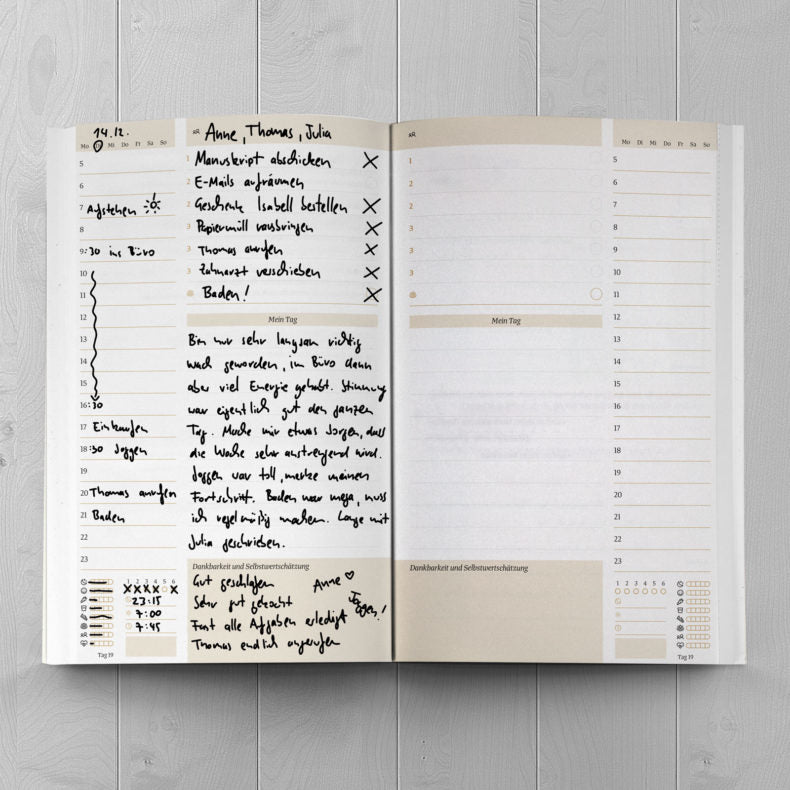 14.12.
Mo Mi Do Fr Sa So
5
6
7 Aufstehen
8
9:30 ins Büro
10
11
12
13
14
15
16:30
17 Einkaufen
18:30 Joggen
19
20 Thomas anrufen
21 Baden
22
23
1 2 3 4 5 6
23:15
7:00
7:45
Tag 19
Anne, Thomas, Julia
1 Manuskript abschicken X
2 E-Mails aufräumen
2 Geschenk Isabell bestellen X
3 Papiermüll rausbringen X
3 Thomas anrufen X
3 Zahnarzt verschieben X
Baden! X
Mein Tag
Bin nur sehr langsam richtig
wach geworden, im Büro dann
aber viel Energie gehabt. Stimmung
war eigentlich gut den ganzen
Tag. Mache mir etwas Sorgen, dass
die Woche sehr anstrengend wird.
Joggen war toll, merke meinen
Fortschritt. Baden war mega, muss
ich regelmäßig machen. Lange mit
Julia geschrieben.
Dankbarkeit und Selbstwertschätzung
Gut geschlafen
Anne ♡
Sehr gut gekocht
Joggen!
Fast alle Aufgaben erledigt
Thomas endlich angerufen
1
2
2
3
3
3
Mein Tag
Dankbarkeit und Selbstwertschätzung
Mo Di Mi Do Fr Sa So
5
6
7
8
9
10
11
12
13
14
15
16
17
18
19
20
21
22
23
1 2 3 4 5 6
Tag 19